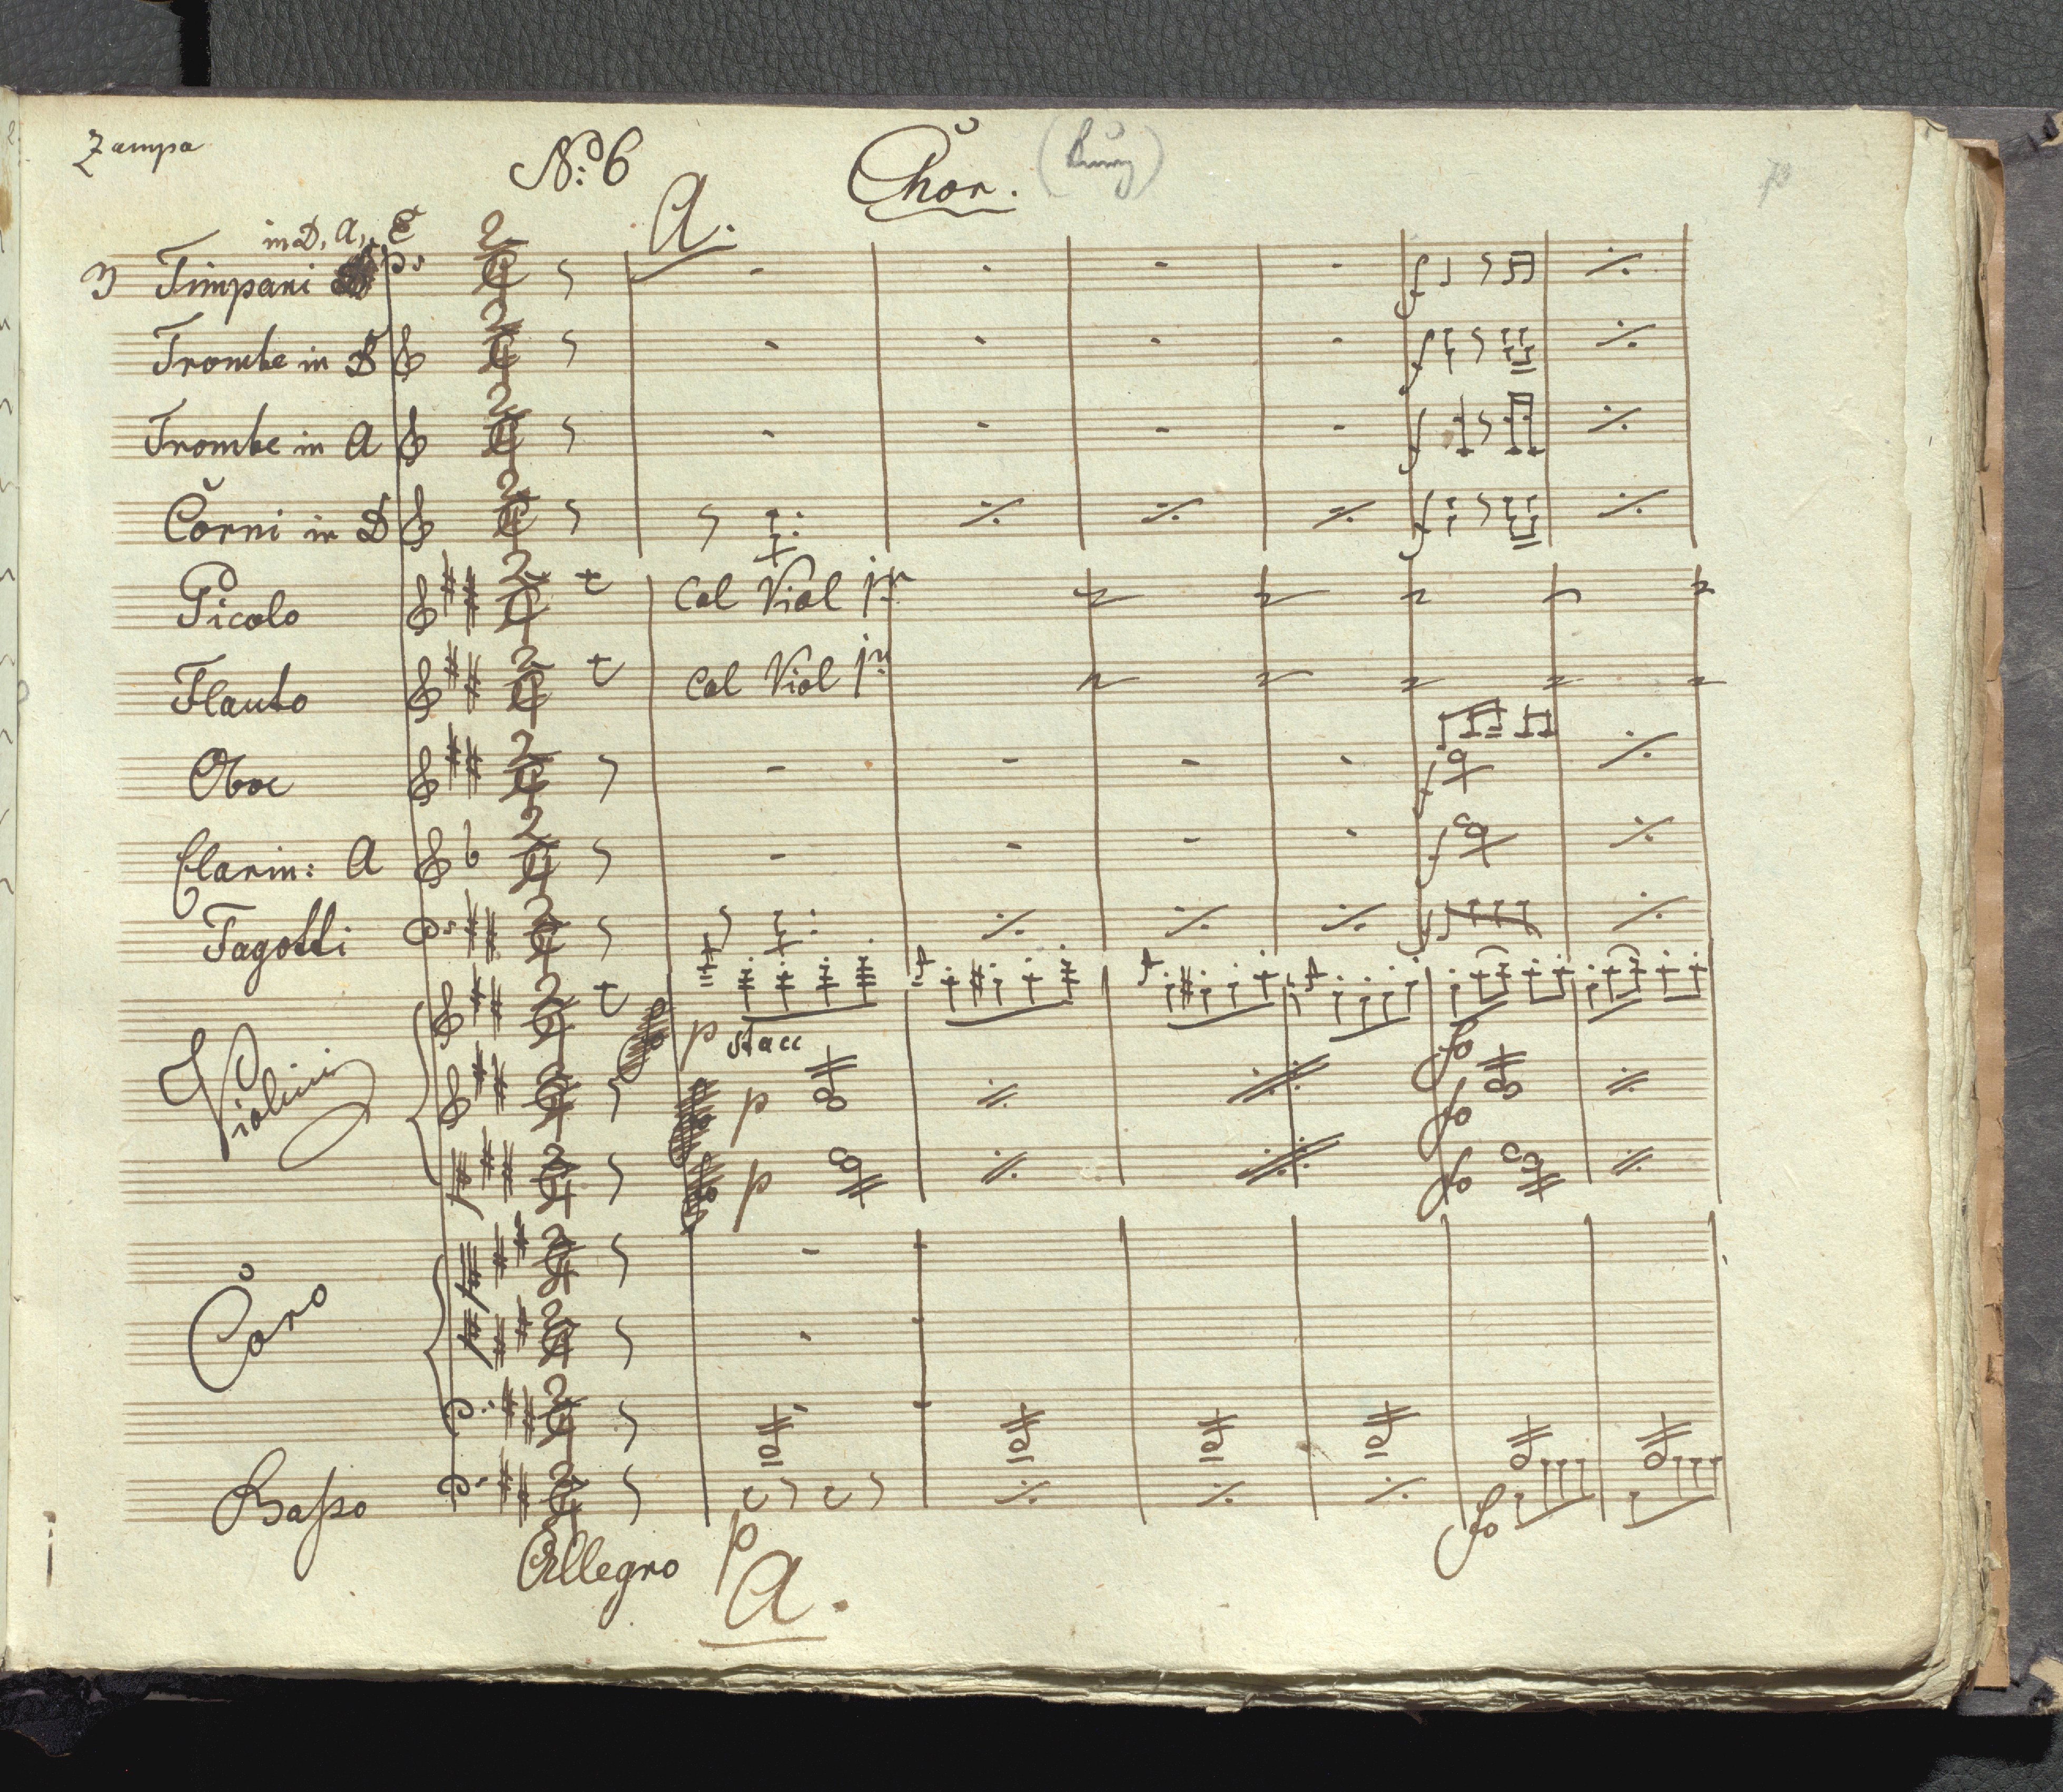 Zampa
No. 6
Chor.
A.
in D, A, E
3 Timpani
Trombe in D
Trombe in A
Corni in D
Picolo
Col Viol 1mo
Flauto
Col Viol 1mo
Oboe
Clarin: A
Fagotti
Violini
p stacc
fo
p
fo
p
fo
Coro
Basso
p
fo
Allegro
A.